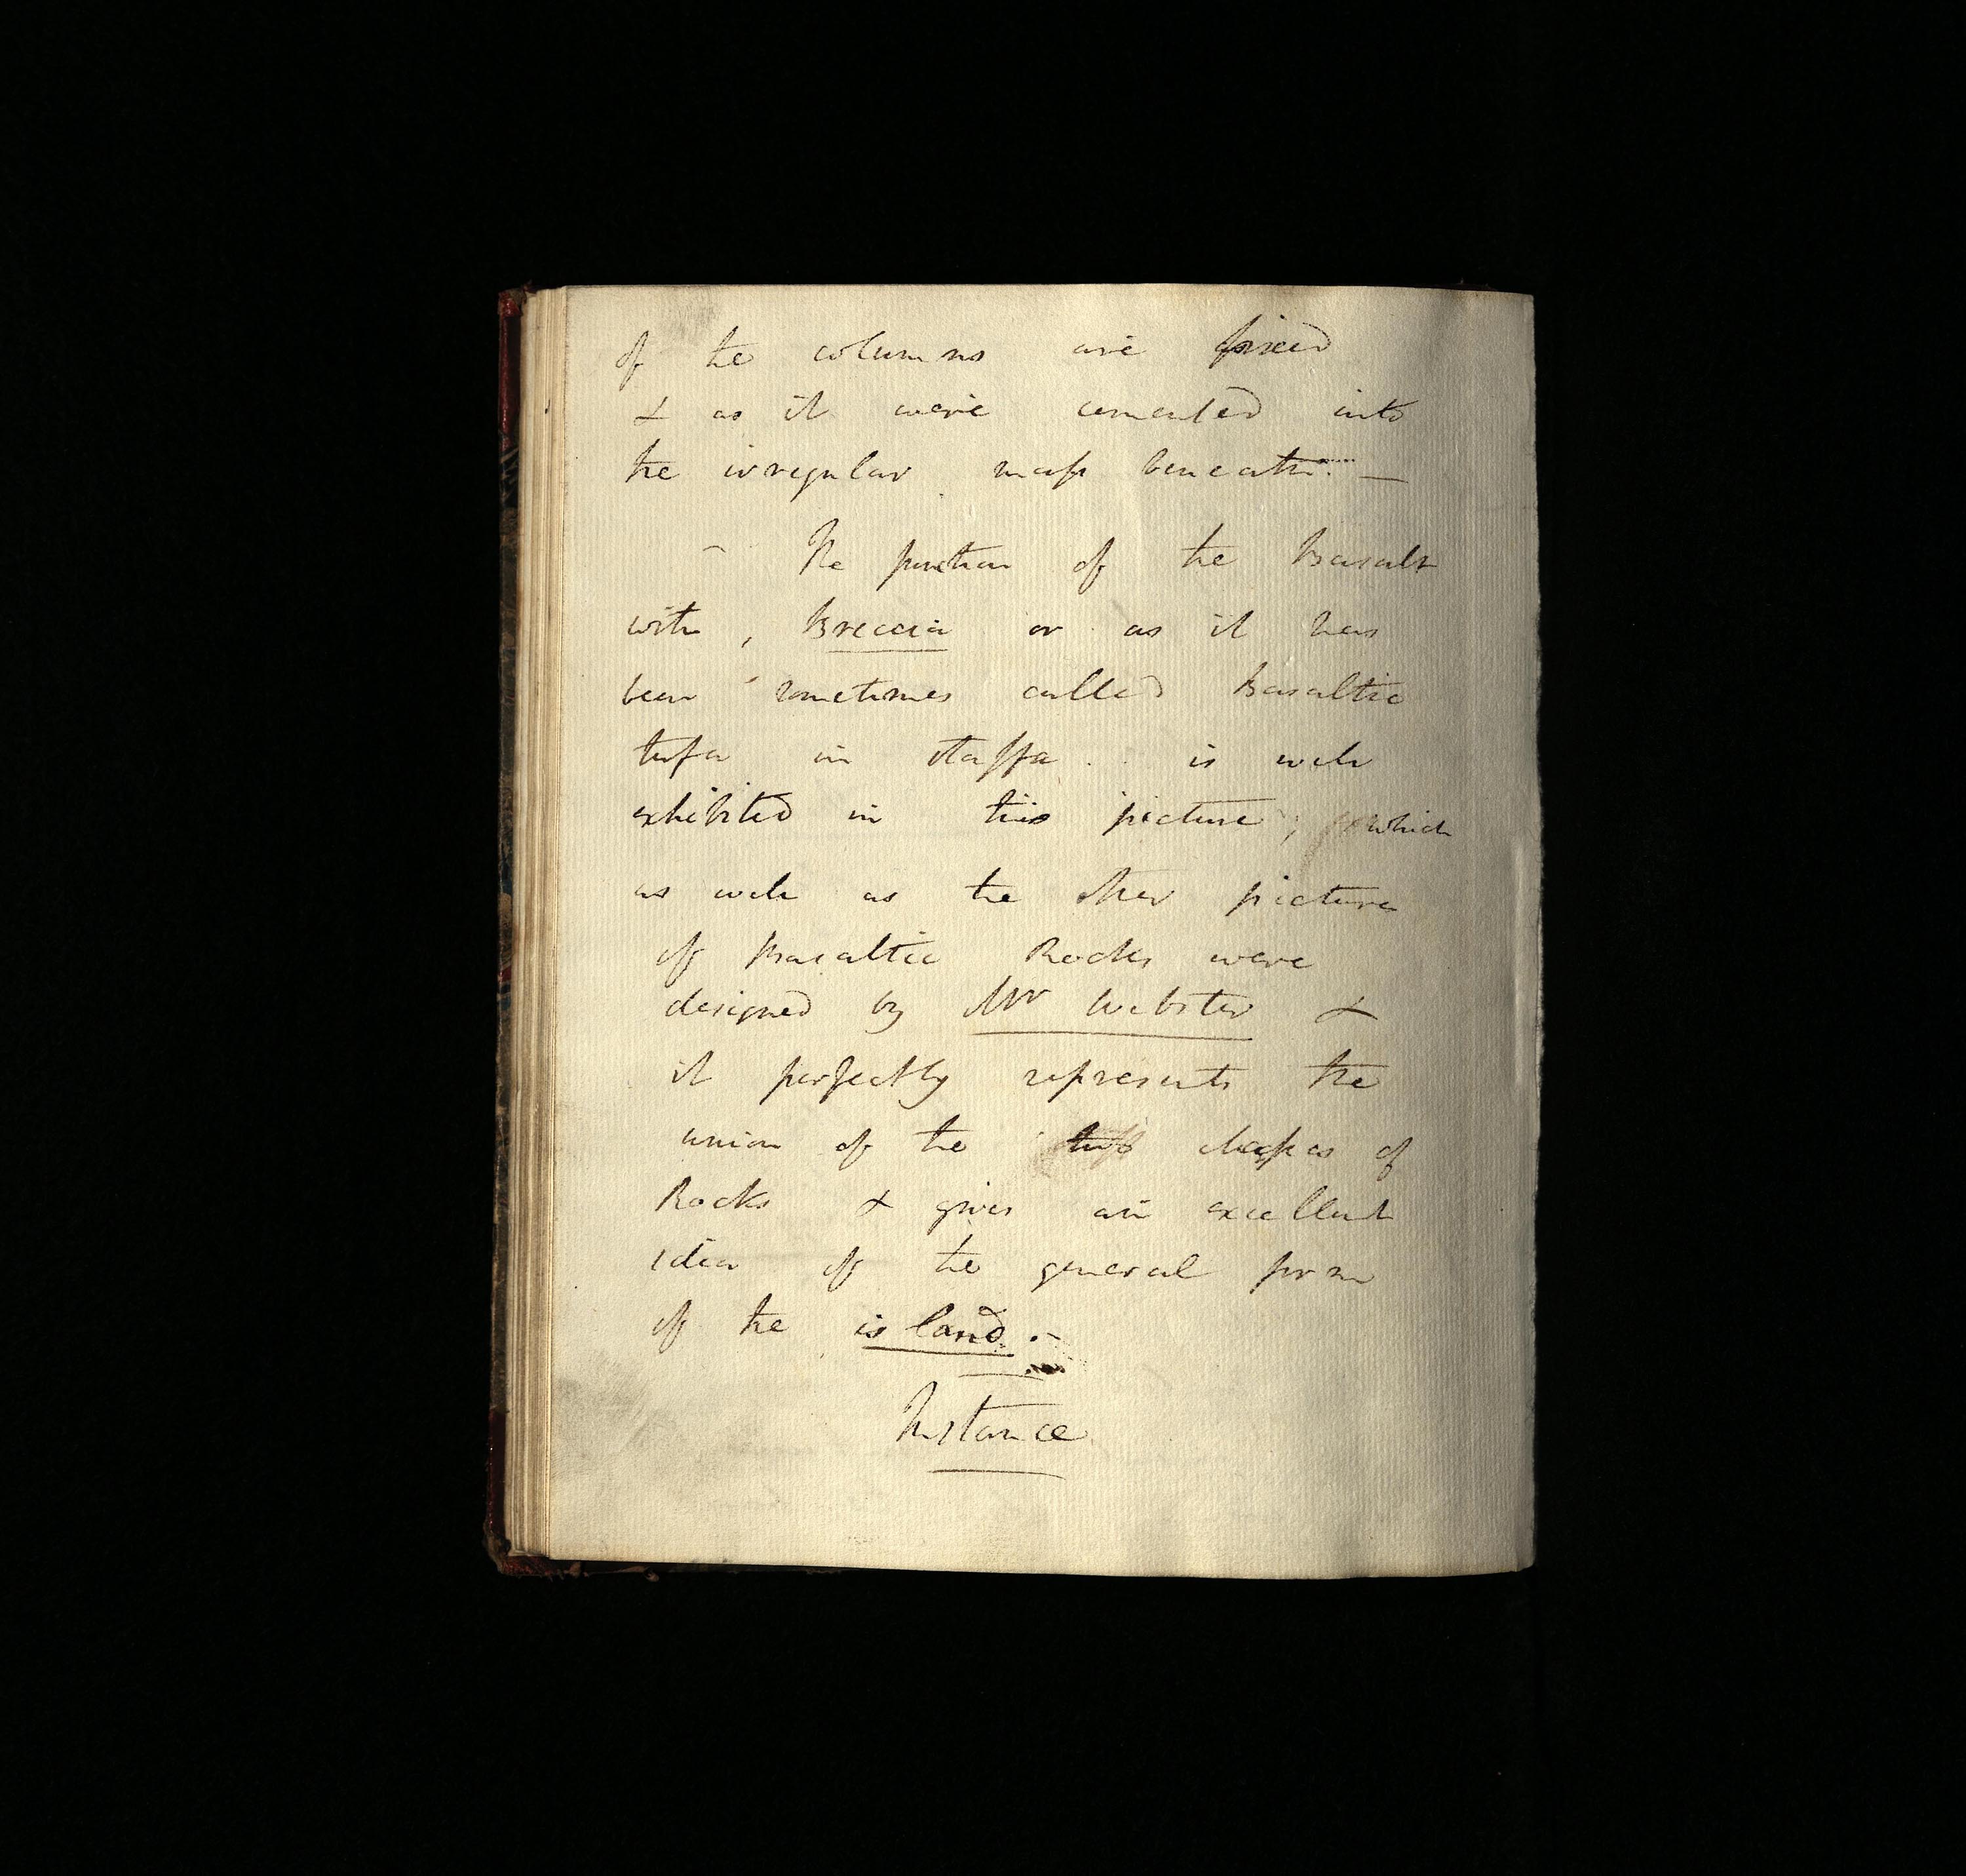 of the columns are fixed
& as it were cemented into
the irregular mass beneath. —
- The junction of the Basalt
with, Breccia or as it has
been sometimes called Basaltic
tufa in Staffa is well
exhibited in this picture; which
as well as the other pictures
of Basaltic Rocks were
designed by Mr Webster &
it perfectly represents the
union of the two classes of
Rocks & gives an excellent
idea of the general form
of the island. -
Instance